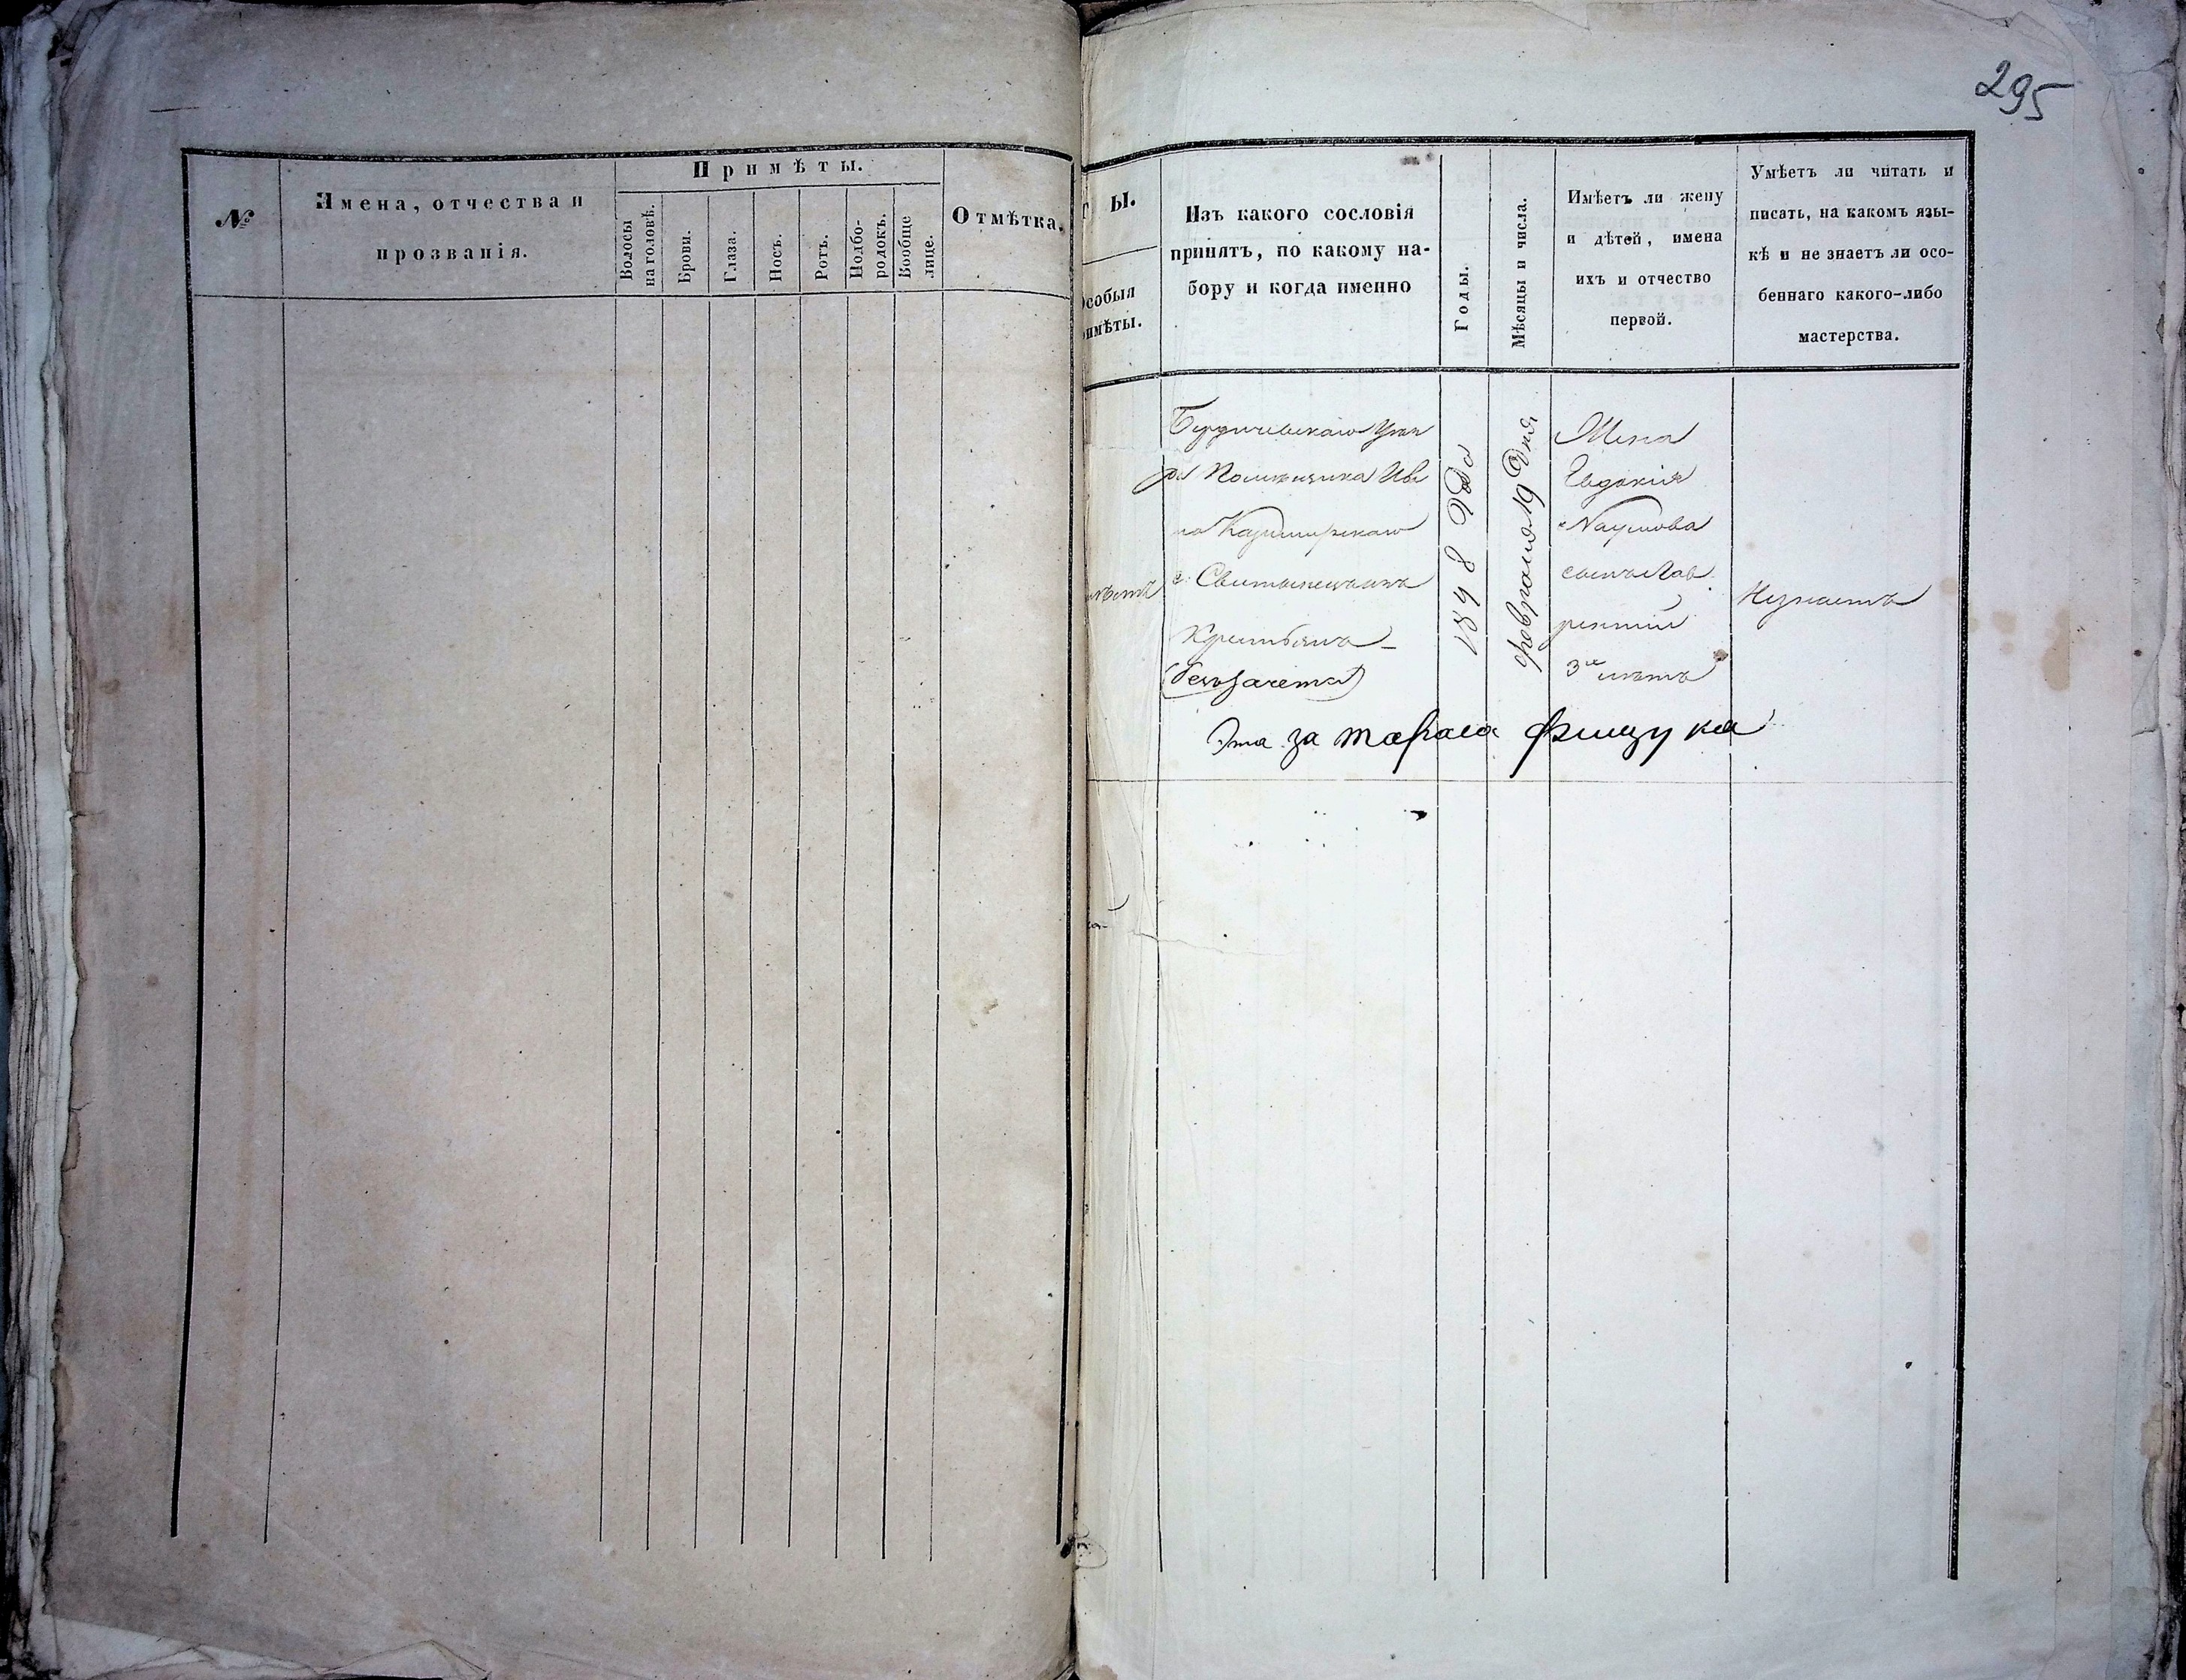 295
№
Имена, отчества и
прозванія.
Примѣты.
Волосы
на головѣ.
Брови.
Глаза.
Носъ.
Ротъ.
Подбо-
родокъ.
Вообще
лице.
Отмѣтка.
ы.
особыя
имѣты.
Изъ какого сословія
принятъ, по какому на-
бору и когда именно
Годы.
Мѣсяцы и числа.
Имѣетъ ли жену
и дѣтей, имена
ихъ и отчество
первой.
Умѣетъ ли читать и
писать, на какомъ язы-
кѣ и не знаетъ ли осо-
беннаго какого-либо
мастерства.
Бердичевскаго Уѣз
да Помѣщика Ива
на Казимирскаго
с.
Крестьянъ
(безъ зачета)
1848 Года
февраля 19 Дня
Жена
Евдокія
Наумова
сынъ Лав
рентій
3хъ лѣтъ
Незнаетъ
Эта за тараса фищука